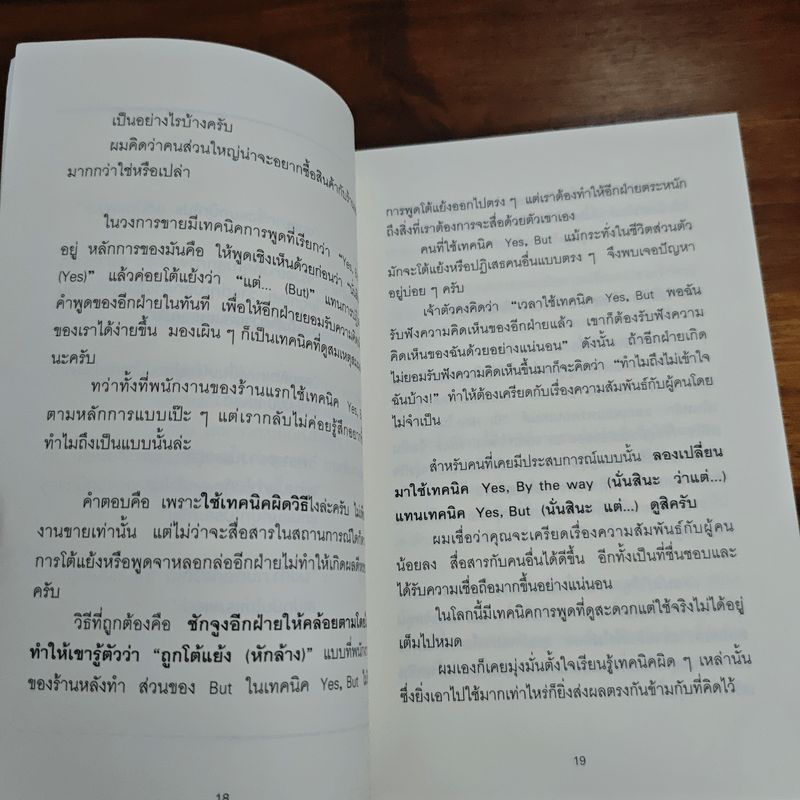 เป็นอย่างไรบ้างครับ
ผมคิดว่าคนส่วนใหญ่น่าจะอยากซื้อสินค้ากับร้าน
มากกว่าใช่หรือเปล่า
ในวงการขายมีเทคนิคการพูดที่เรียกว่า “Yes,
อยู่ หลักการของมันคือ ให้พูดเชิงเห็นด้วยก่อนว่า
(Yes)” แล้วค่อยโต้แย้งว่า “แต่... (But)” แทนการ
คำพูดของอีกฝ่ายในทันที เพื่อให้อีกฝ่ายยอมรับความคิด
ของเราได้ง่ายขึ้น มองเผิน ๆ ก็เป็นเทคนิคที่ดูสมเหตุสมผล
นะครับ
ทว่าทั้งที่พนักงานของร้านแรกใช้เทคนิค Yes,
ตามหลักการแบบเป๊ะ ๆ แต่เรากลับไม่ค่อยรู้สึกอยาก
ทำไมถึงเป็นแบบนั้นล่ะ
คำตอบคือ เพราะใช้เทคนิคผิดวิธีไงล่ะครับ
งานขายเท่านั้น แต่ไม่ว่าจะสื่อสารในสถานการณ์ใด
การโต้แย้งหรือพูดจาหลอกล่ออีกฝ่ายไม่ทำให้เกิดผลดี
ครับ
วิธีที่ถูกต้องคือ ชักจูงอีกฝ่ายให้คล้อยตามโดย
ทำให้เขารู้ตัวว่า “ถูกโต้แย้ง (หักล้าง)” แบบที่พนัก
ของร้านหลังทำ ส่วนของ But ในเทคนิค Yes, But
18
การพูดโต้แย้งออกไปตรง ๆ แต่เราต้องทำให้อีกฝ่ายตระหนัก
ถึงสิ่งที่เราต้องการจะสื่อด้วยตัวเขาเอง
คนที่ใช้เทคนิค Yes, But แม้กระทั่งในชีวิตส่วนตัว
มักจะโต้แย้งหรือปฏิเสธคนอื่นแบบตรง ๆ จึงพบเจอปัญหา
อยู่บ่อย ๆ ครับ
เจ้าตัวคงคิดว่า “เวลาใช้เทคนิค Yes, But พอฉัน
รับฟังความคิดเห็นของอีกฝ่ายแล้ว เขาก็ต้องรับฟังความ
คิดเห็นของฉันด้วยอย่างแน่นอน” ดังนั้น ถ้าอีกฝ่ายเกิด
ไม่ยอมรับฟังความคิดเห็นขึ้นมาก็จะคิดว่า “ทำไมถึงไม่เข้าใจ
ฉันบ้าง!” ทำให้ต้องเครียดกับเรื่องความสัมพันธ์กับผู้คนโดย
ไม่จำเป็น
สำหรับคนที่เคยมีประสบการณ์แบบนั้น ลองเปลี่ยน
มาใช้เทคนิค Yes, By the way (นั่นสินะ ว่าแต่...)
แทนเทคนิค Yes, But (นั่นสินะ แต่...) ดูสิครับ
ผมเชื่อว่าคุณจะเครียดเรื่องความสัมพันธ์กับผู้คน
น้อยลง สื่อสารกับคนอื่นได้ดีขึ้น อีกทั้งเป็นที่ชื่นชอบและ
ได้รับความเชื่อถือมากขึ้นอย่างแน่นอน
ในโลกนี้มีเทคนิคการพูดที่ดูสะดวกแต่ใช้จริงไม่ได้อยู่
เต็มไปหมด
ผมเองก็เคยมุ่งมั่นตั้งใจเรียนรู้เทคนิคผิด ๆ เหล่านั้น
ซึ่งยิ่งเอาไปใช้มากเท่าไหร่ก็ยิ่งส่งผลตรงกันข้ามกับที่คิดไว้
19